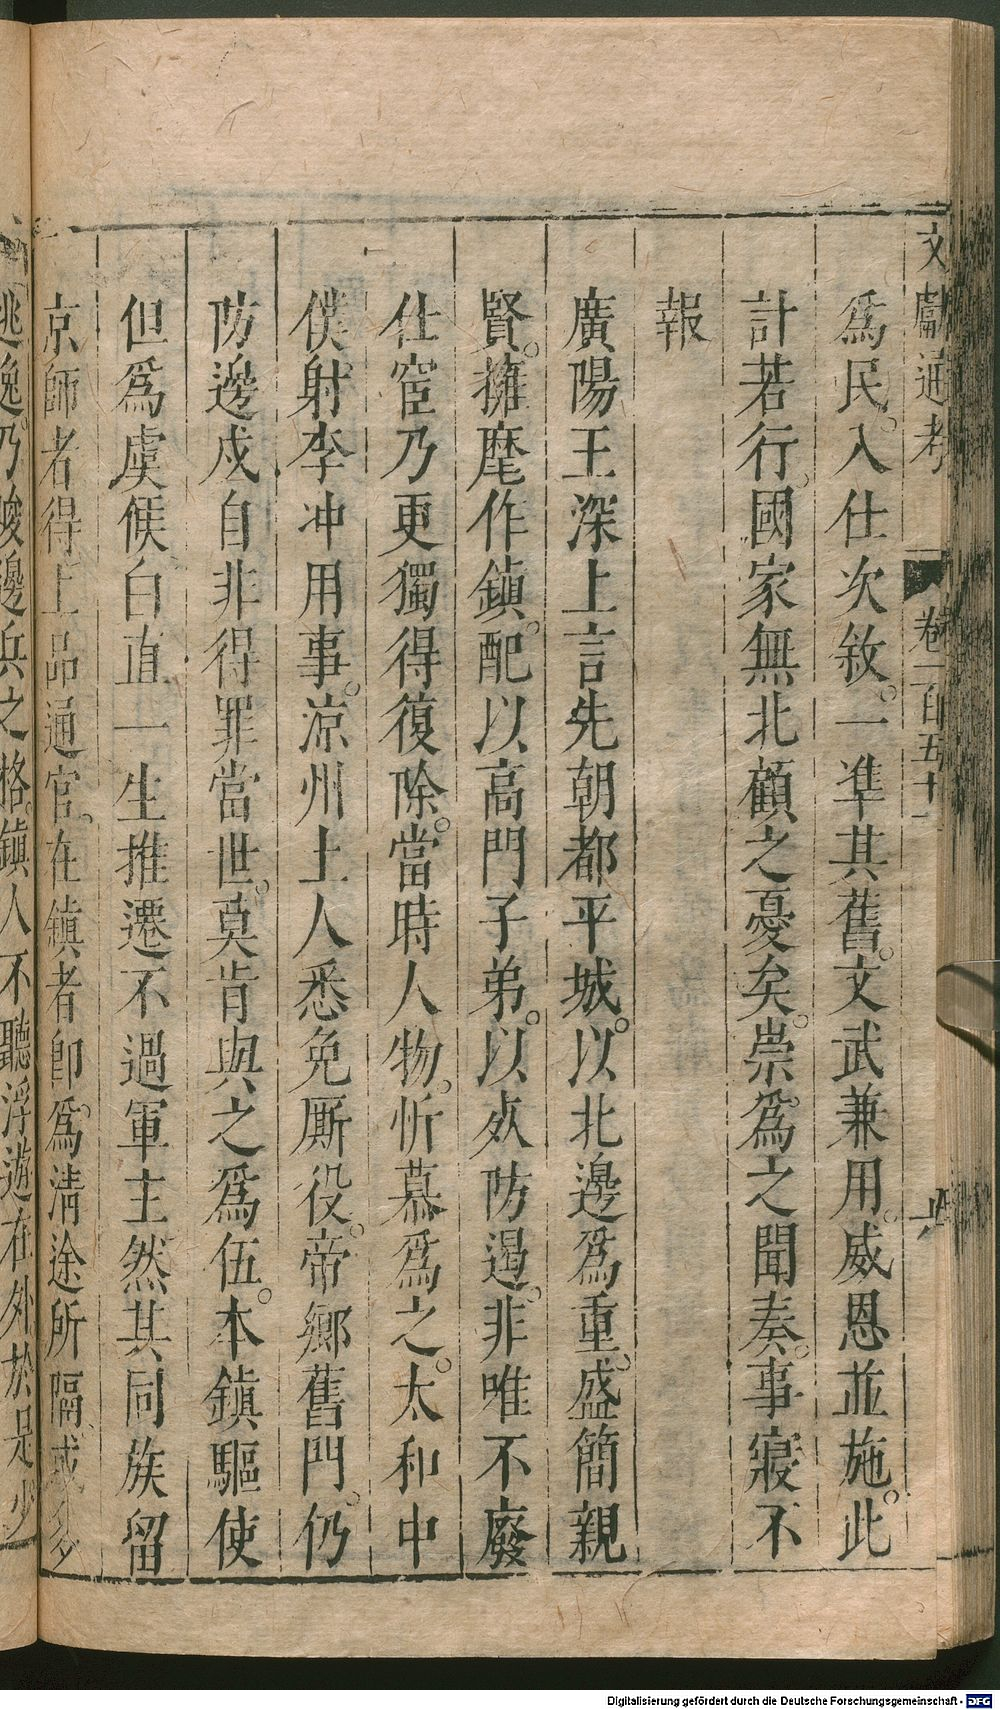 文獻通考 卷一百五十一 六
爲民入仕次敘一準其舊文武兼用威恩並施此
計若行國家無北顧之憂矣崇爲之聞奏事寢不
報
廣陽王深上言先朝都平城以北邊爲重盛簡親
賢擁麾作鎮配以高門子弟以死防遏非唯不廢
仕宦乃更獨得復除當時人物忻慕爲之太和中
僕射李冲用事凉州土人悉免厮役帝鄉舊門仍
防邊戍自非得罪當世莫肯與之爲伍本鎮驅使
但爲虞候白直一生推遷不過軍主然其同族留
京師者得上品通官在鎮者卽爲清途所隔或多
逃逸乃峻邊兵之格鎮人不聽浮遊在外於是少
Digitalisierung gefördert durch die Deutsche Forschungsgemeinschaft - DFG